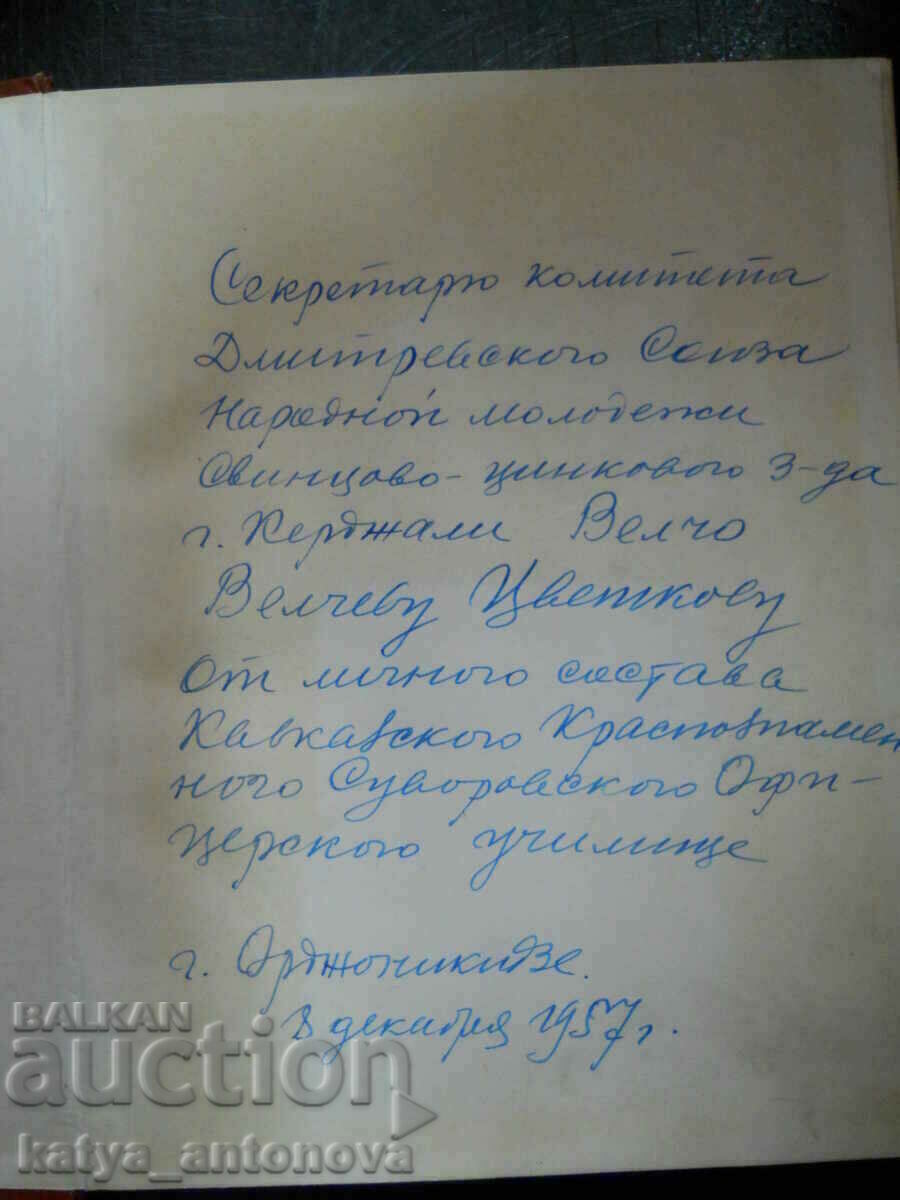 Секретарю комитета
Дмитревского Союза
Народной молодежи
Свинцово-цинкового з-да
г. Керджали Велчо
Велчеву Цветкову
От личного состава
Кавказского Краснознамен
ного Суворовского Офи-
церского училище
г. Орджоникидзе.
8 декабря 1957 г.
BALKAN
auction
katya_antonova